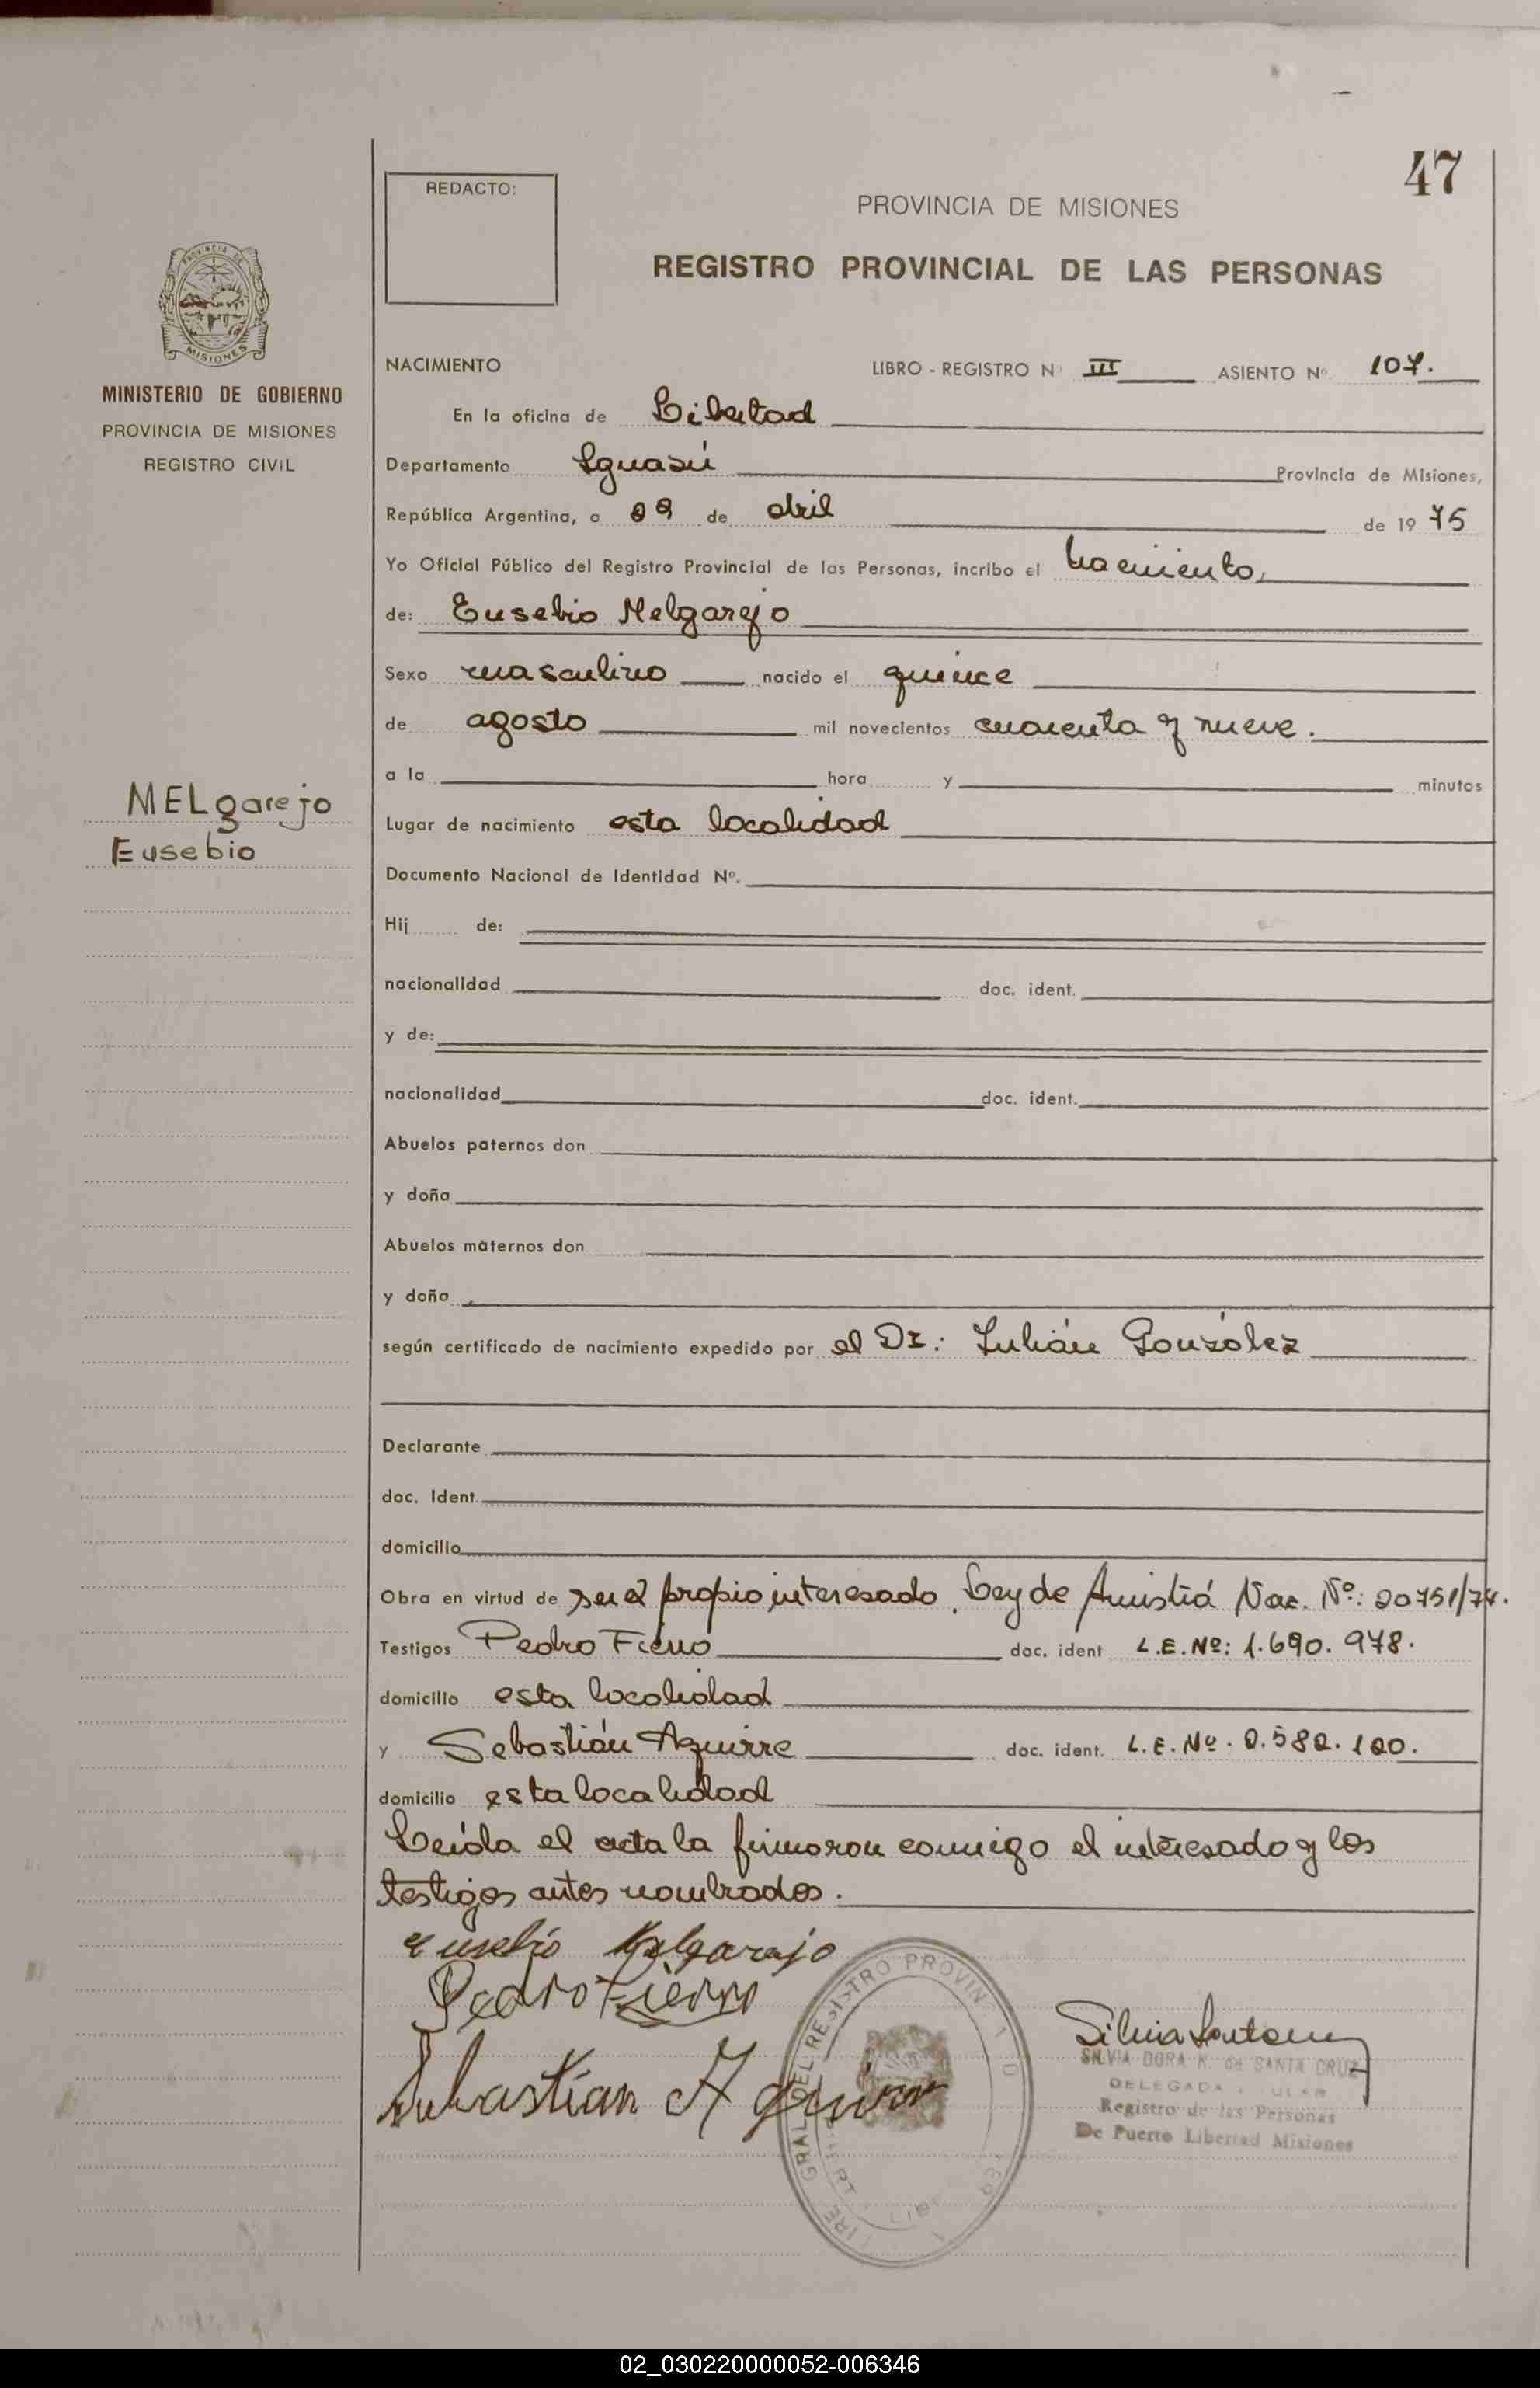 47
REDACTO:
PROVINCIA DE MISIONES
REGISTRO PROVINCIAL DE LAS PERSONAS
MISIONES
MINISTERIO DE GOBIERNO
PROVINCIA DE MISIONES
REGISTRO CIVIL
NACIMIENTO LIBRO - REGISTRO Nº III ASIENTO Nº 107.
En la oficina de Libertad
Departamento Iguasú Provincia de Misiones,
República Argentina, a 09 de abril de 1975
Yo Oficial Público del Registro Provincial de las Personas, incribo el nacimiento,
de: Eusebio Melgarejo
Sexo masculino nacido el quince
de agosto mil novecientos cuarenta y nueve.
a la hora y minutos
MELgarejo
Eusebio
Lugar de nacimiento esta localidad
Documento Nacional de Identidad Nº.
Hij de:
nacionalidad doc. ident.
y de:
nacionalidad doc. ident.
Abuelos paternos don
y doña
Abuelos maternos don
y doña
según certificado de nacimiento expedido por el Dr: Julián González
Declarante
doc. Ident.
domicilio
Obra en virtud de ser el propio interesado. Ley de Amistiá Nac. Nº: 20751/74.
Testigos Pedro Fierro doc. ident L.E.Nº: 1.690.978.
domicilio esta localidad
y Sebastián Aguirre doc. ident. L.E.Nº. 2.582.120.
domicilio esta localidad
Leída el acta la firmaron conmigo el interesado y los
testigos antes nombrados.
Eusebio Melgarejo
Pedro Fierro
Sebastian Aguirre
GRAL DEL REGISTRO PROVIN
Silvia
SILVIA DORA K. de SANTA CRUZ
DELEGADA
Registro de las Personas
De Puerto Libertad Misiones
02_030220000052-006346